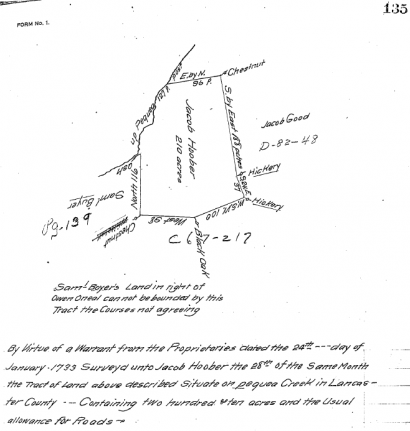 135
FORM No. 1.
E. by N.
96 P.
Chestnut
Jacob Hoober
210 acres
S. by East
Jacob Good
D-82-48
Hickery
Hickery
Ash
North 116
Saml Byer
Pg. 139
Chestnut
West 98
W.S.W. 100
C 67-217
Black Oak
Saml Boyer's Land in right of
Owen Oneal cannot be bounded by this
Tract the Courses not agreeing
By Virtue of a Warrant from the Proprietaries dated the 24th --- day of
January 1733 Surveyd unto Jacob Hoober the 28th of the Same Month
the Tract of Land above described Situate on pequea Creek in Lancas-
ter County --- Containing two hundred & ten acres and the Usual
allowance for Roads -